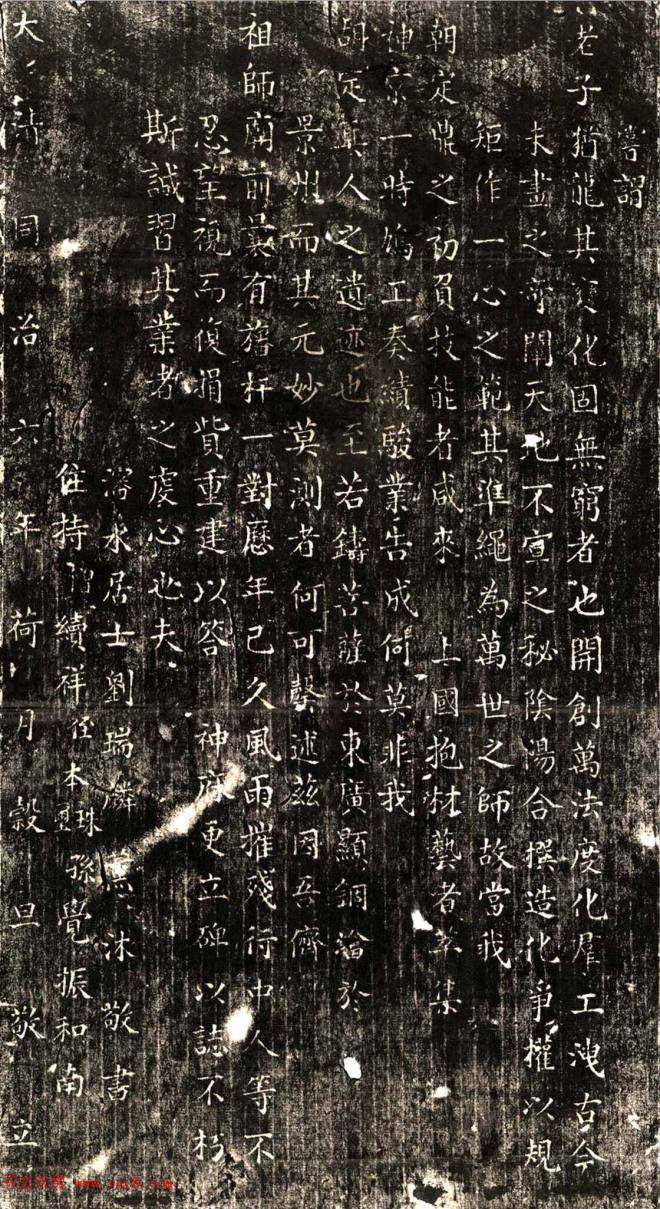 嘗謂
老子猶龍其變化固無窮者也開創萬法度化羣工洩古今
未盡之奇闡天地不宣之秘陰陽合撰造化爭權以規
矩作一心之範其準繩為萬世之師故當我
朝定鼎之初負技能者咸來 上國抱材藝者萃集
神京一時鳩工奏績駿業告成何莫非我
胡定真人之遺迹也至若鑄菩薩於東廣顯銅 於
景州而其元妙莫測者何可罄述茲因吾儕
祖師廟前曩有舊杆一對歷年已久風雨摧殘行中人等不
忍望視而復捐貲重建以答 神庥更立碑以誌不朽
斯誠習其業者之虔心也夫
水居士劉瑞麟 沐敬書
住持 續祥徒本珠 孫覺振和南
大清同治六年荷月穀旦 敬立
书法欣赏 www.yac8.com